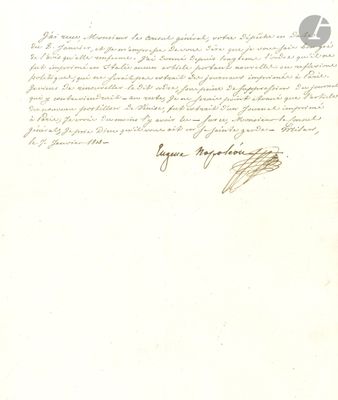 J'ai reçu, Monsieur le Consul général, votre Dépêche en date
du 2. Janvier, et je m'empresse de vous dire que je vous sais bon gré
de l'avis qu'elle renferme. J'ai donné depuis longtems l'ordre qu'il ne
fut imprimé en Italie aucun article portant nouvelle ou reflexion
politique, qui ne serait pas extrait des journaux imprimés à Paris.
Je viens de renouveller le dit ordre, sous peine de suppression du journal
qui y contreviendrait. au reste, Je ne serais point étonné que l'article
du nouveau postillon de Venise, fut extrait d'un Journal imprimé
à Paris, Je crois du moins l'y avoir lu. Sur ce, Monsieur le Consul
général, Je prie Dieu qu'il vous ait en sa sainte garde. Milan,
le 7. Janvier
Eugène Napoléon